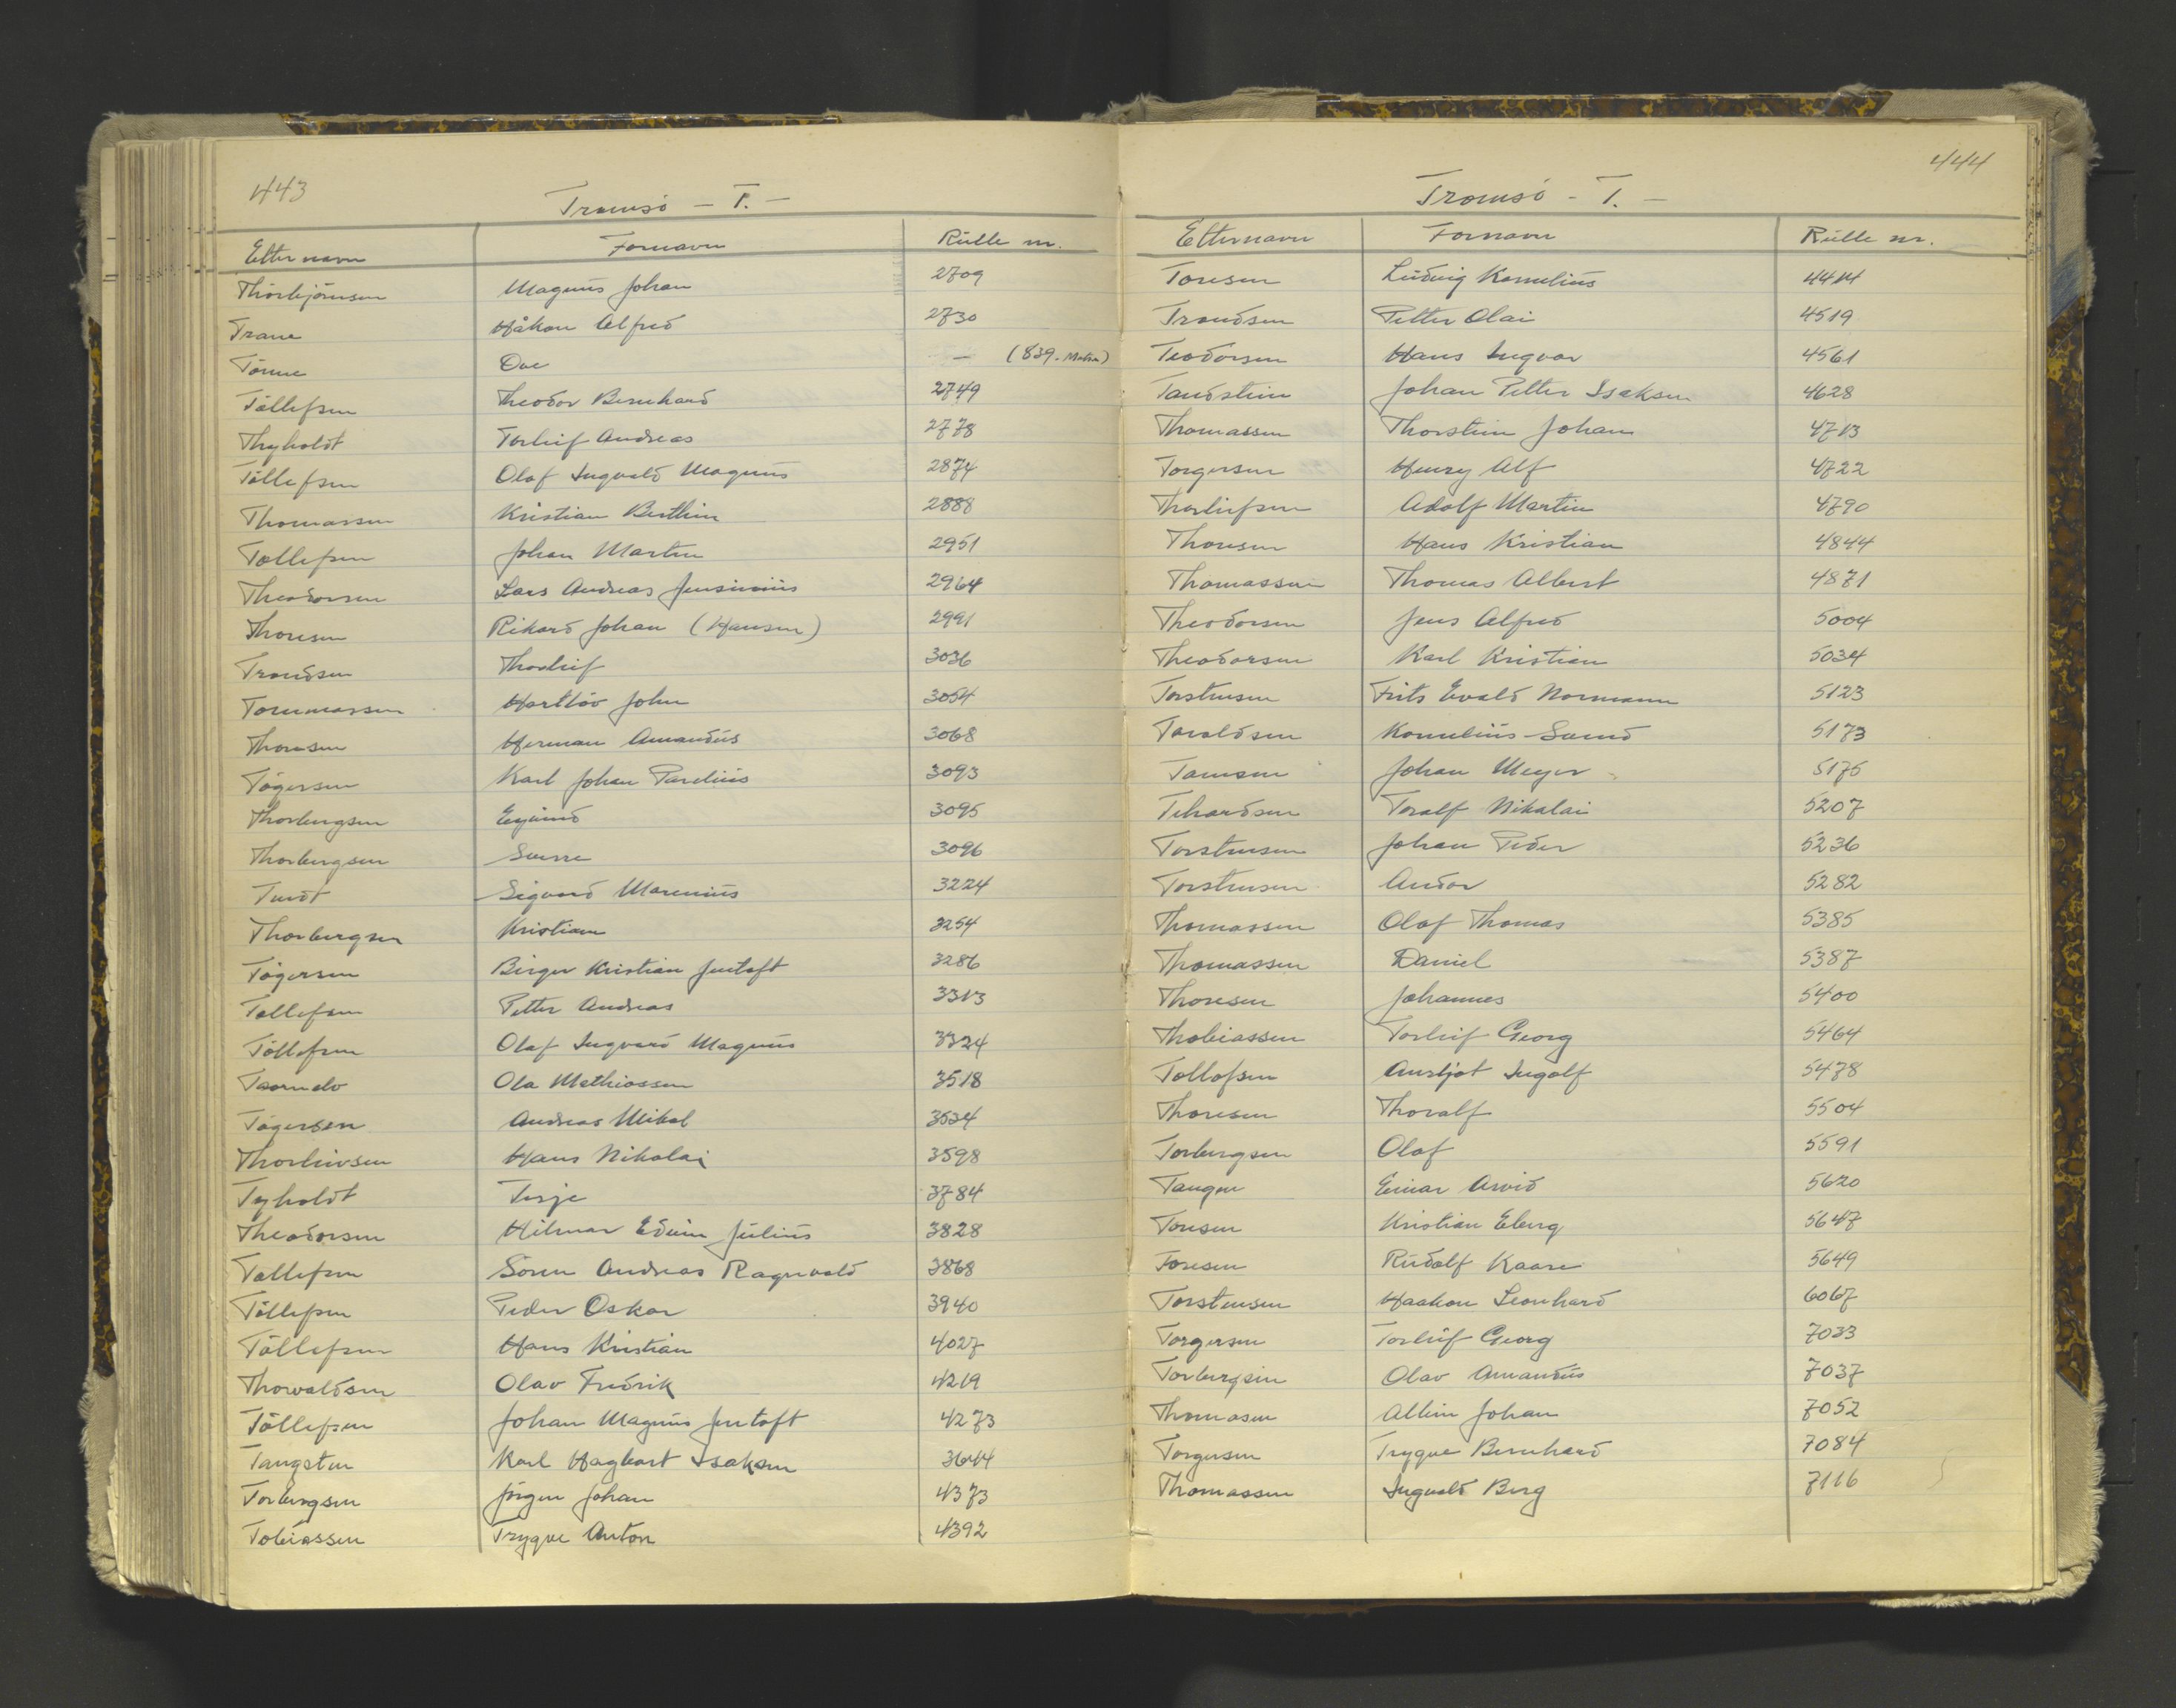 443
Tromsö – T. –
Etternavn Fornavn Rulle nr.
Thorbjörnsen Magnus Johan 2709
Trane Håkon Alfred 2730
Tönne Ove – (839.)
Töllefsen Theodor Bernhard 2749
Thyholdt Torleif Andreas 2778
Töllefsen Olaf Ingvald Magnus 2874
Thomassen Kristian Berthin 2888
Tollefsen Johan Martin 2951
Theodorsen Lars Andreas 2964
Thoresen Rikard Johan (Hansen) 2991
Trondsen Thorleif 3036
Tommassen John 3054
Thoresen Herman Amandus 3068
Tögersen Karl Johan Parelius 3093
Thorbergsen Eyvind 3095
Thorbergsen Sverre 3096
Sigvard Marenius 3224
Thorbergsen Kristian 3254
Tögersen Birger Kristian Jentoft 3286
Tollefsen Petter Andreas 3313
Töllefsen Olaf Ingvard Magnus 3324
Ola Mathiassen 3518
Tögersen Andreas Mikal 3534
Thorleivsen Hans Nikolai 3598
Tyholdt Terje 3784
Theodorsen Hilmar Edvin Julius 3828
Tollefsen Sören Andreas Ragnvald 3868
Töllefsen Peder Oskar 3940
Töllefsen Hans Kristian 4027
Thorvaldsen Olav Fredrik 4219
Töllefsen Johan Magnus Jentoft 4273
Tangsten Karl Hagbart Isaksen 3644
Torbergsen Jörgen Johan 4373
Tobiassen Trygve Anton 4392
444
Tromsö - T. –
Etternavn Fornavn Rulle nr.
Toresen Ludvig Kornelius 4414
Trondsen Petter Olai 4519
Teodorsen Hans Ingvar 4561
Tandstein Johan Petter Isaksen 4628
Thomassen Thorstein Johan 4713
Torgersen Henry Alf 4722
Thorleifsen Adolf Martin 4790
Thoresen Hans Kristian 4844
Thomassen Thomas Albert 4871
Theodorsen Jens Alfred 5004
Theodorsen Karl Kristian 5034
Torstensen Frits Evald Normann 5123
Toraldsen Kornelius 5173
Johan Meyer 5175
Toralf Nikolai 5207
Torstensen Johan Peder 5236
Torstensen Andor 5282
Thomassen Olaf Thomas 5385
Thomassen Daniel 5387
Thoresen Johannes 5400
Thobiassen Torleif Georg 5464
Tollofsen Anstjot Ingolf 5478
Thoresen Thoralf 5504
Torbergsen Olaf 5591
Tangen Einar Arvid 5620
Toresen Kristian Eberg 5647
Toresen Rudolf Kaare 5649
Torstensen Haakon Leonhard 6067
Torgersen Torleif Georg 7033
Torbergsen Olav Amandus 7037
Thomasen Albin Johan 7052
Torgersen Trygve Bernhard 7084
Thomassen Ingvald Berg 7116